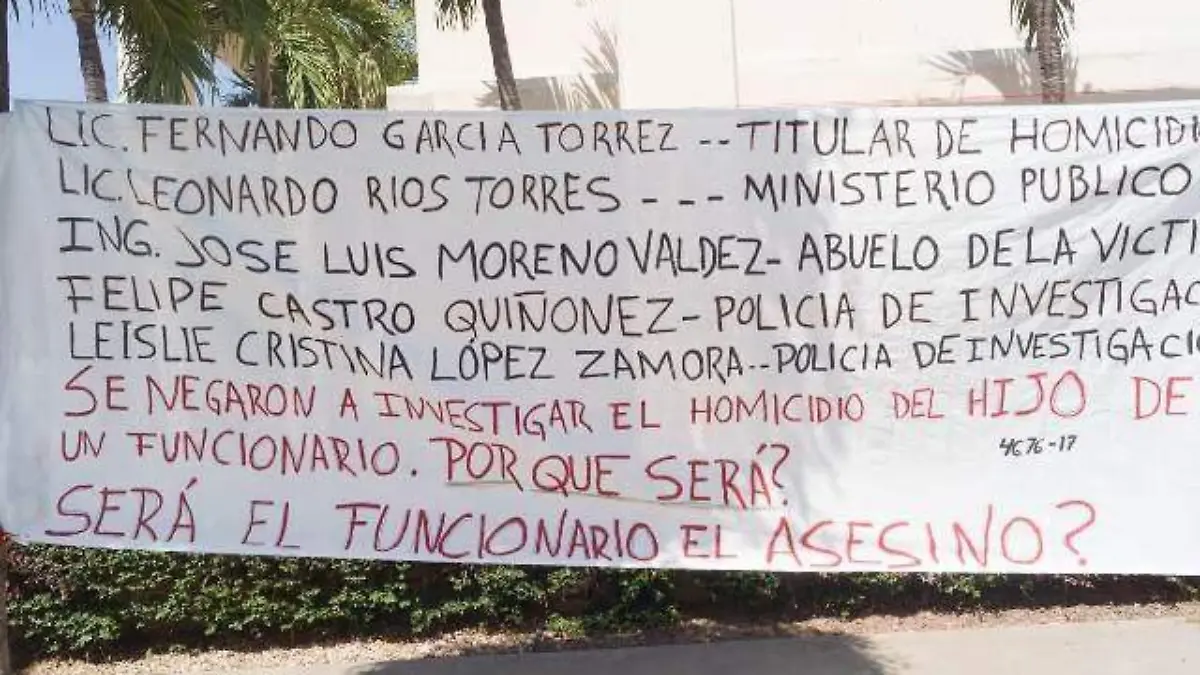 LIC. FERNANDO GARCIA TORREZ -- TITULAR DE HOMICIDI
LIC. LEONARDO RIOS TORRES - - - MINISTERIO PUBLICO
ING. JOSE LUIS MORENO VALDEZ - ABUELO DE LA VICTI
FELIPE CASTRO QUIÑONEZ - POLICIA DE INVESTIGAC
LEISLIE CRISTINA LÓPEZ ZAMORA -- POLICIA DE INVESTIGACIO
SE NEGARON A INVESTIGAR EL HOMICIDIO DEL HIJO DE
UN FUNCIONARIO. POR QUE SERÁ?
4C76-17
SERÁ EL FUNCIONARIO EL ASESINO?